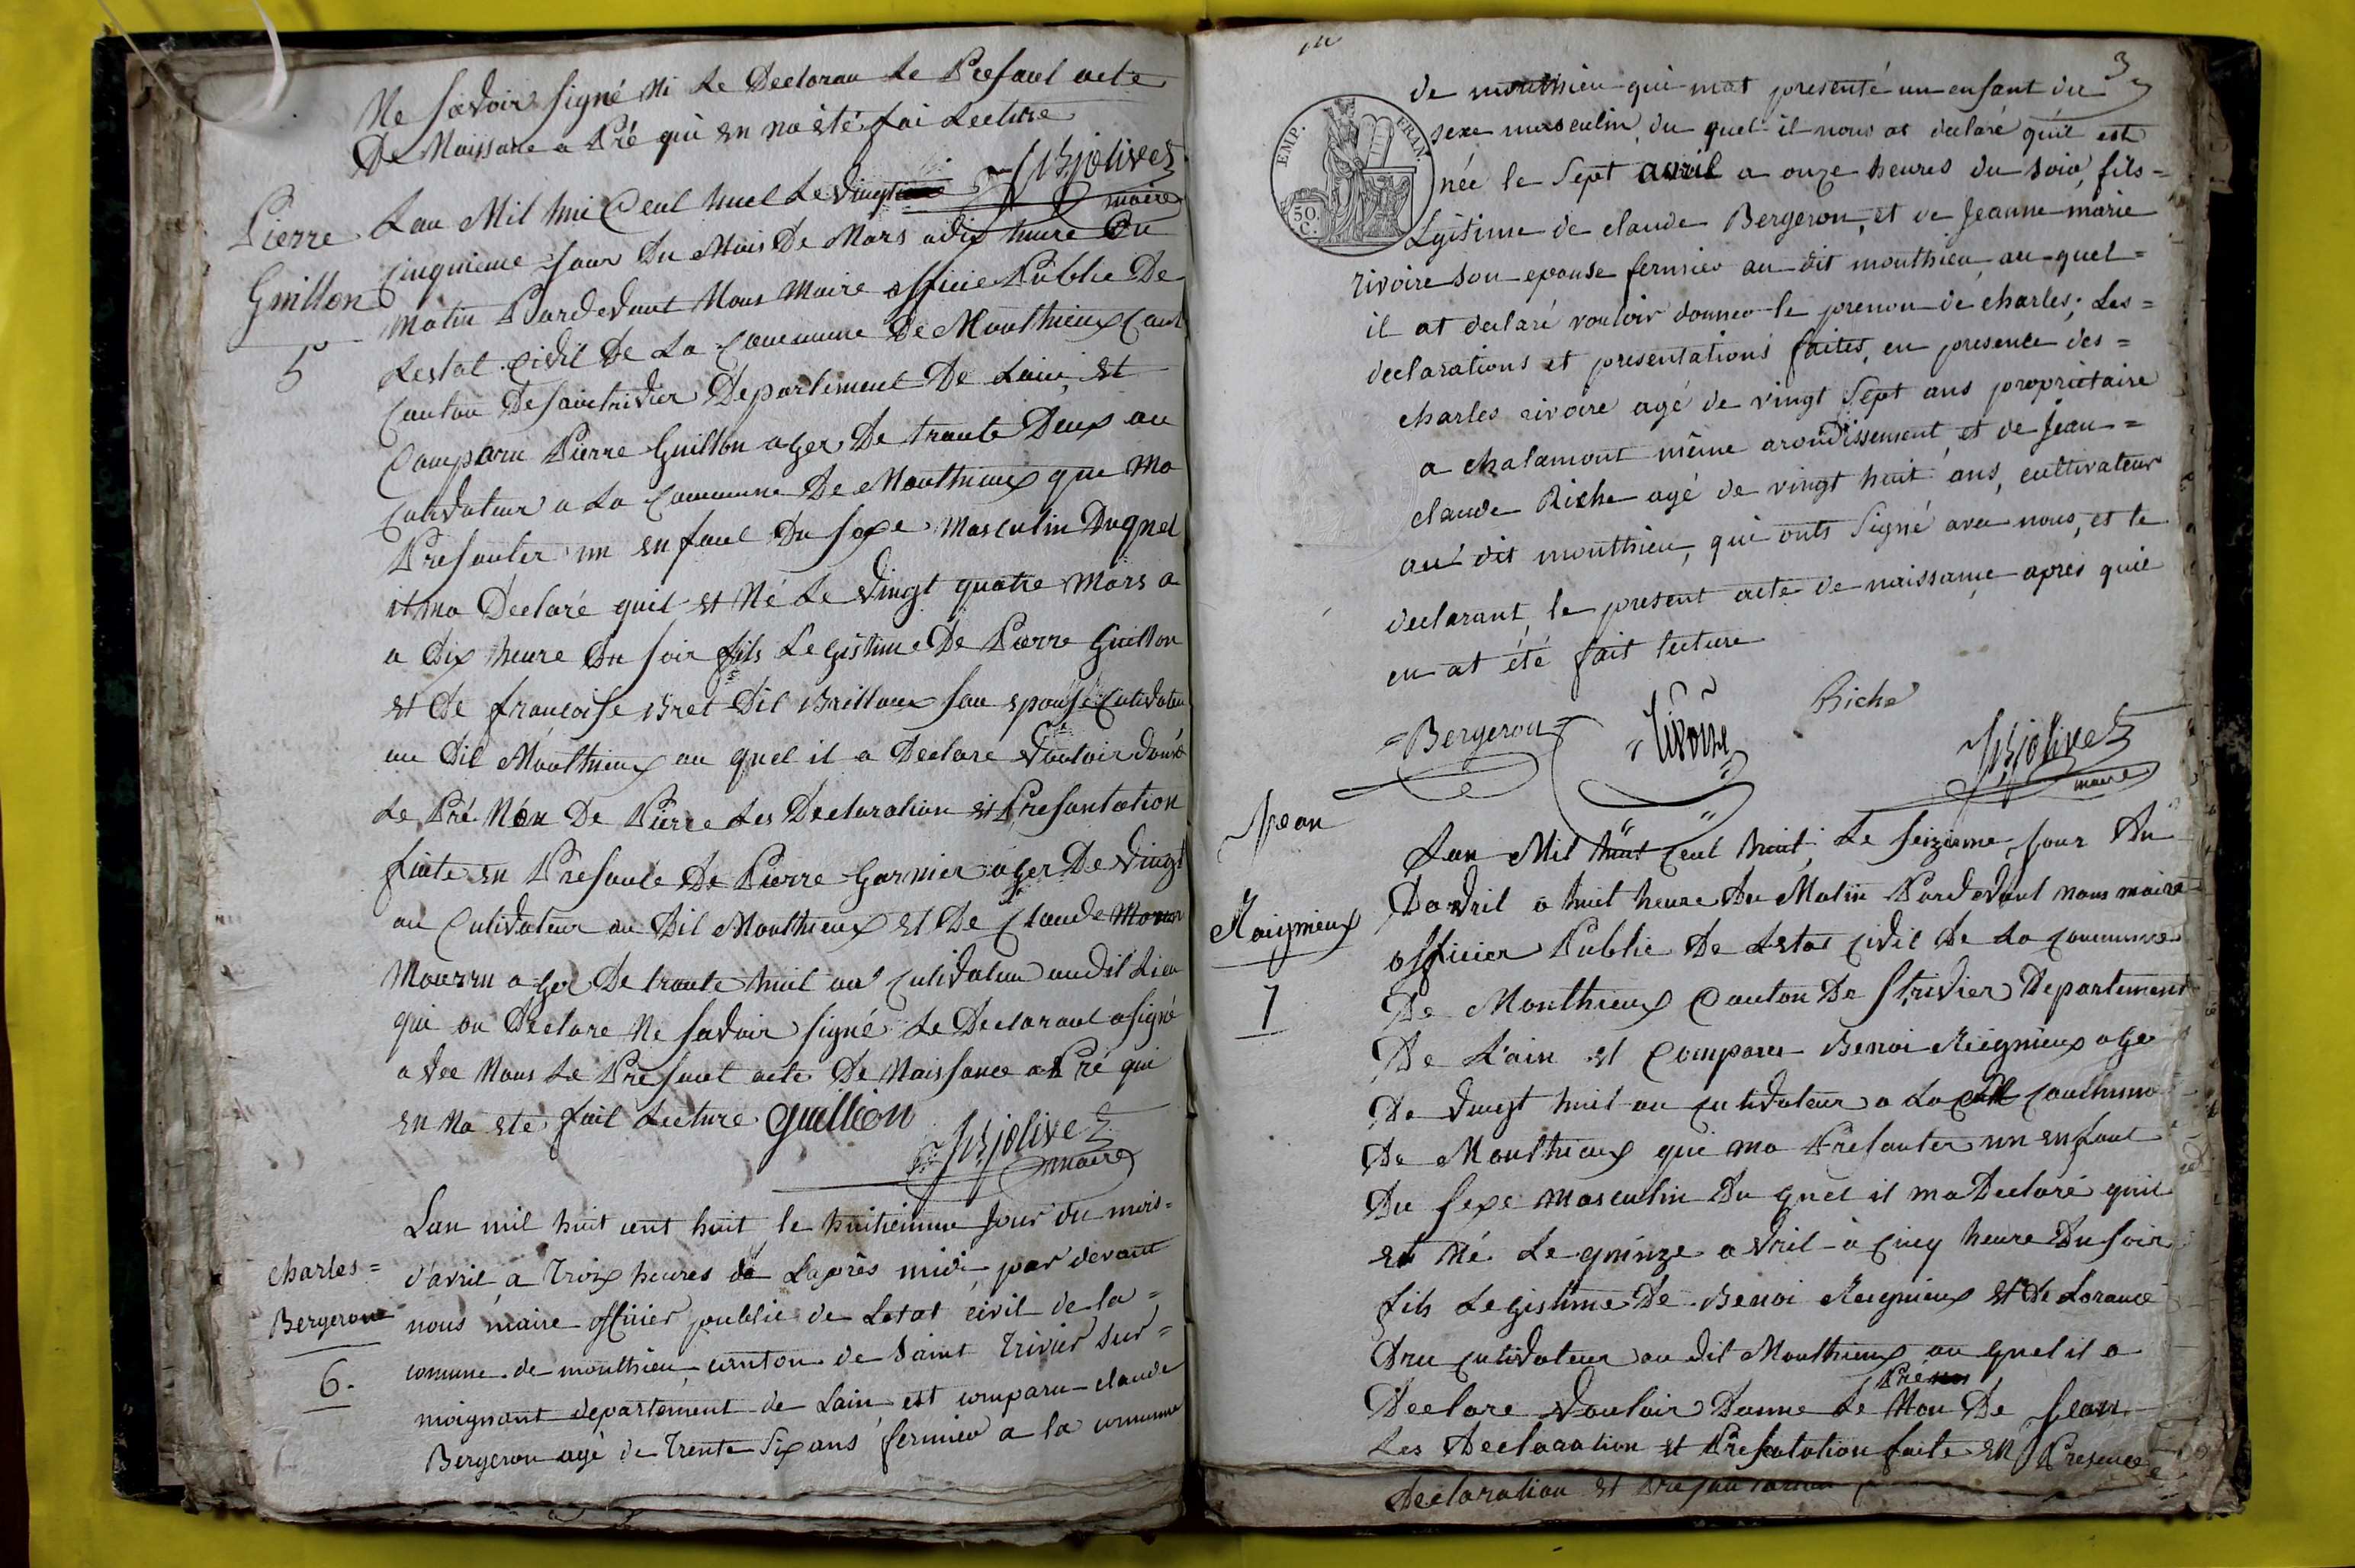 Ne savoir signé ni le Declaran le Presant acte
De Naissance a Pré qui en na été fai Lecture
JB jolivet
maire
Pierre
Guillon
5
Lan Mil hui Cent huit Le vingt
cinquieme jour Du Mois De Mars a dix heure Du
matin Pardevant Nous Maire officié Public De
Lestat Civil De La Commune De Monthieux Cant
Canton De saintrivier Departement De Lain, et
Comparu Pierre Guillon ager De trante Deux an
Cultivateur a La Commune De Monthieux que ma
Presanter un enfant Du sexe Masculin Duquel
il ma Declaré quil et Né Le vingt quatre Mars a
a Dix heure Du soir fils Legistime De Pierre Guillon
et De francoise Bret Dit Brillant son epouse Cultivateur
au Dit Monthieux au quel il a Declare vouloir Donné
Le Pré Non De Pierre Les Declaration et Presantation
faite en Presance De Pierre Garnier ager De vingt
an Cultivateur au Dit Monthieux et De Claude
Mourru ager De trante huit an Cultivateur audit Lieu
qui on Declare Ne savoir signé Le Declarant a signé
avec Nous Le Presant acte De Naissance a Pré qui
en Na eté fait Lecture guillion
JB jolivet
maire
charles =
Bergeron
6.
Lan mil huit cent huit le huitiemme jour du mois =
d'avril, a Troix heures de Laprès midi, par devant
nous maire officier publiic de Letat civil de la =
comune de monthieu, canton de Saint Trivier sur =
moignant departement de Lain, est comparu claude
Bergeron agé de Trente Six ans fermier a la comune
3
de monthieu qui mat presenté un enfant du
sexe masculin, du quel il nous at declaré qu'il est
née le Sept avril a onze heures du soir, fils =
Legitime de claude Bergeron, et de Jeanne marie
rivoire son epouse fermier au dit monthieu, au quel =
il at declaré vouloir donner le prenom de charles; Les =
declarations et presentations faites, en presence des =
charles rivoire agé de vingt Sept ans propriétaire
a chalamont même arondissement, et de Jean =
claude Riche agé de vingt huit ans, cultivateur
au dit monthieu, qui onts Signé avec nous, et le
declarant, le present acte de naissance après quil
en at été fait lecture
EMP. FRAN.
50.
C.
= Bergeron =
rivoire
Riche
JB jolivet
maire
Jean
Raignieux
7
Lan Mil huit cent huit, Le seizieme jour Du
Davril a huit heure Du Matin Pardevant nous maire
officier Public De Lestat Civil De La Commune
De Monthieux Canton De St rivier Departement
De L'ain et Comparu Benoi Reignieux ager
De vingt huit an cultivateur a La Commune
De Monthieux qui ma Presanter un enfant
Du sexe Masculin Du quel il ma Declaré quil
et Né Le quinze avril a cinq heure Du soir
fils Legistime De Benoi Reignieux et De Lorance
Dru cultivateur au dit Monthieux au quel il a
Pré
Declare vouloir Donne Le Non De Jean
Les Declaration et Presantation faite en Presence
Declaration et